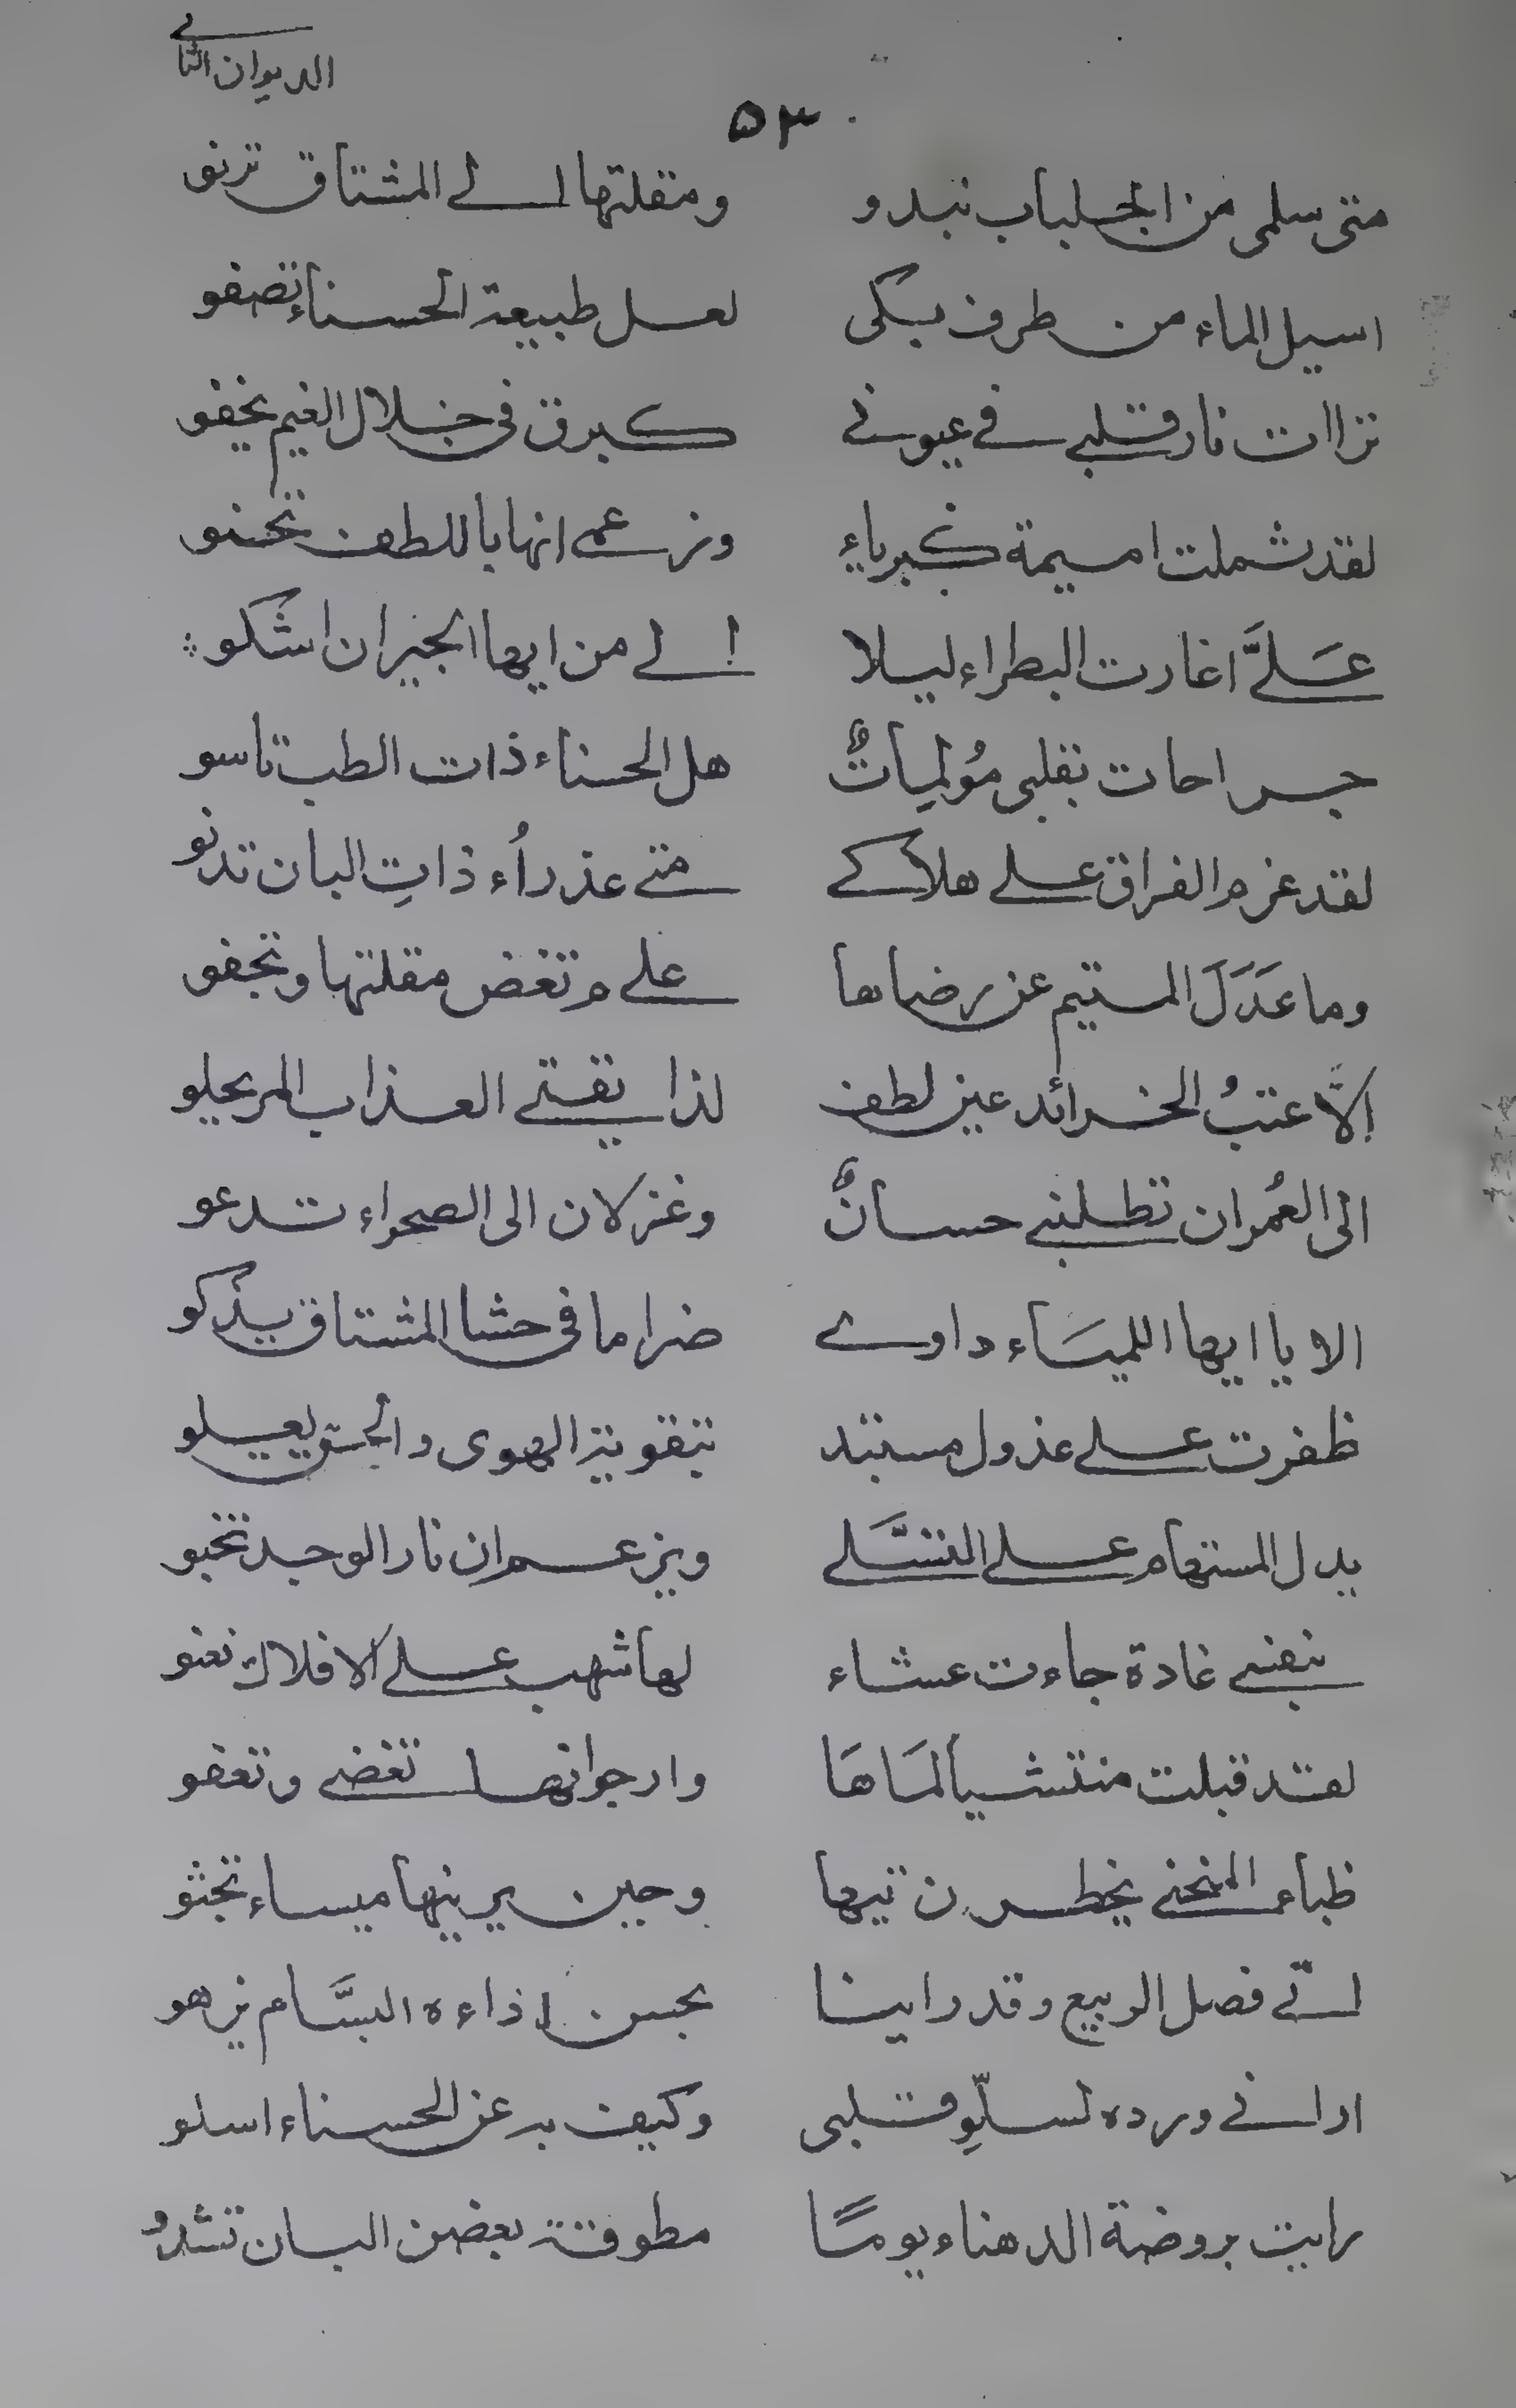 الديوان الثاني
۵۳
متى سلمى من الجلباب تبدو ومقلتها الى المشتاق ترنو
اسيل الماء من طرف بكى لعل طبيعة الحسناء تصفو
تراات نار قلبي في عيوني كبرق في خلال الغيم يخفو
لقد شملت اميمة كبرياء وزعمى انها باللطف تحنو
عَلَيَّ اغارت البطراء ليلا الى من ايها الجيران اشكو
جراحات بقلبى مُولِمِاتٌ هل الحسناء ذات الطب تاسو
لقد عزم الفراق على هلاكي متى عذراُء ذاتِ البان تدنو
وما عَدَلَ المتيم عن رضاها علي م تغض مقلتها وتجفو
اِلاَّ عتبُ الخرائد عين لطف لذا يقتي العذاب المر يحلو
الى العُمران تطلبني حسانٌ وغزلان الى الصحراء تدعو
الا يا ايها اللميَاء داوي ضراما في حشا المشتاق يذكو
ظفرت على عذول مستبد بتقوية الهوى والحق يعلو
يدل المستهام على التسَّلي ويزعم ان نار الوجد تخبو
بنفسي غادة جاءت عشاء لها شهب على الافلاك تعنو
لقد قبلت منتشياً لمَاهَا وارجو انها تغضى وتعفو
ظباء المنحنى يخطرن تيها وحين يرينها ميساء تجثو
اتى فصل الربيع وقد راينا بحسن اذاءه البسَّام يزهو
اراني ورده لسلّوِ قلبى وكيف به عن الحسناء اسلو
رايت بروضة الدهناء يومًا مطوقة بغصن البان تشدُو